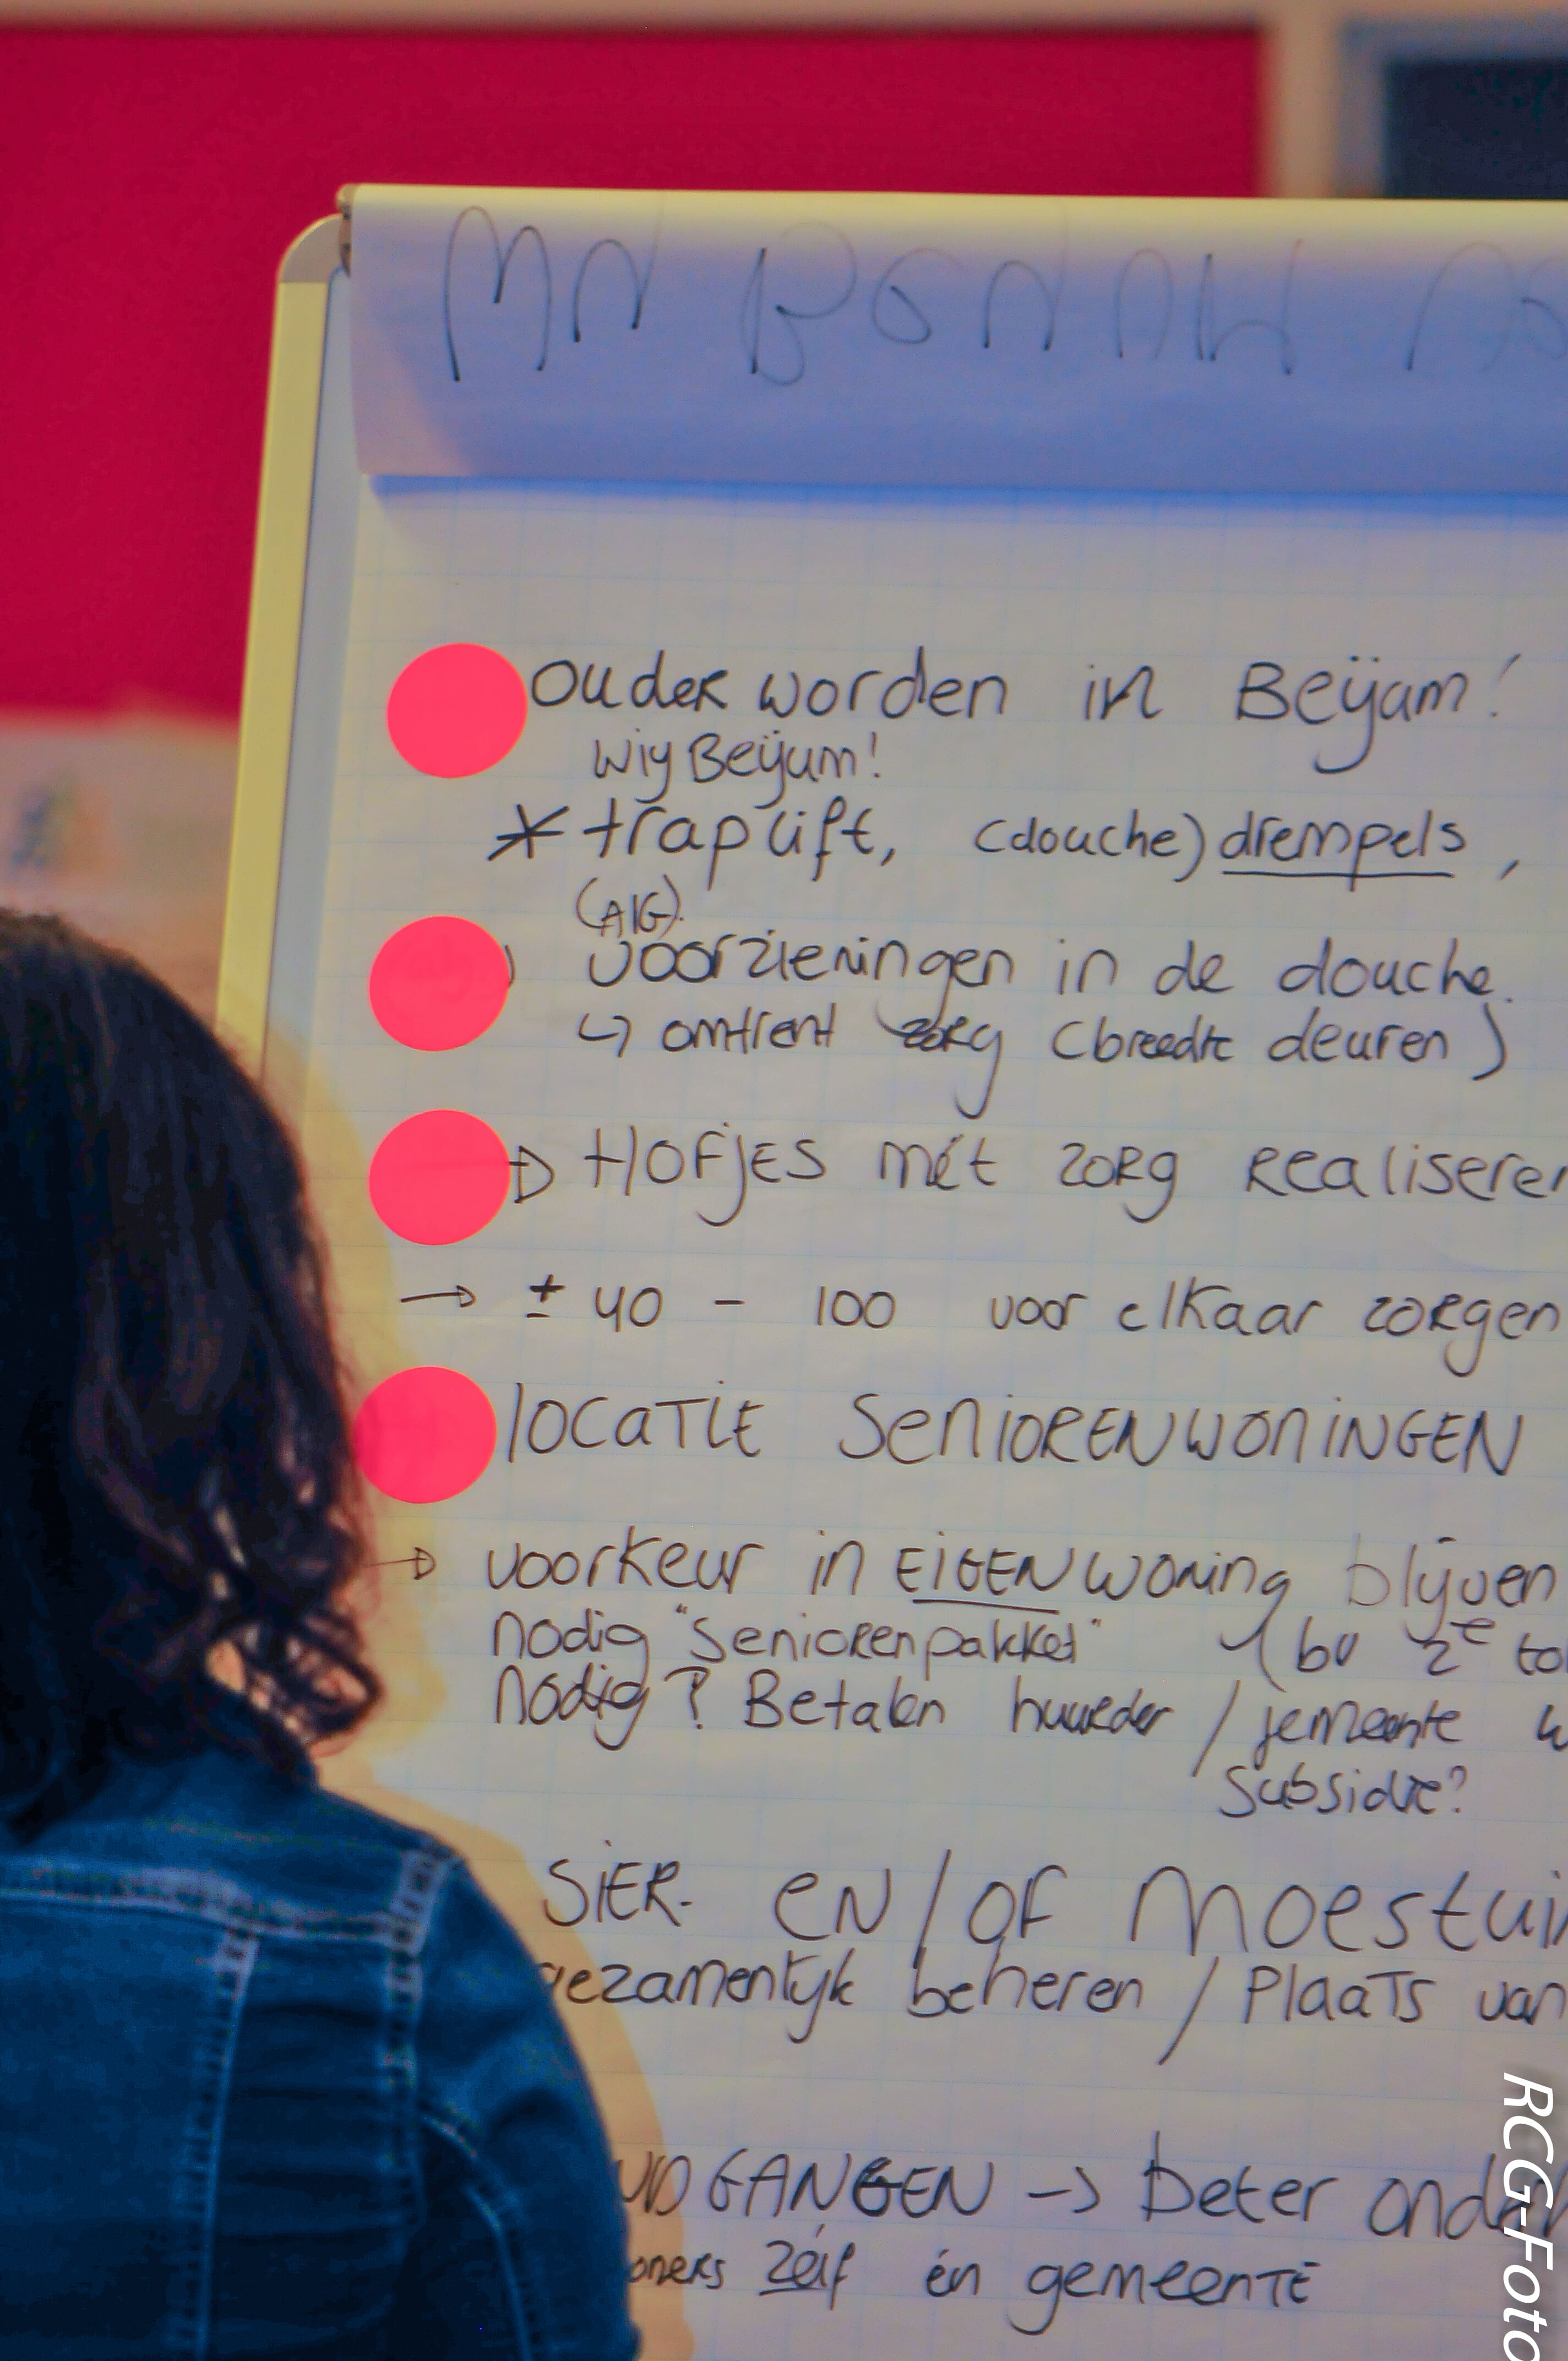 ouder worden in Beijum!
wij Beijum!
* traplift, (douche) drempels,
(AlG).
voorzieningen in de douche.
↳ omtrent zorg (breedte deuren)
HOFJES mét ZORG Realiseren
→ ± 40 - 100 voor elkaar zorgen
locatie SENIORENWONINGEN
→ voorkeur in EIGEN woning blijven
nodig "Seniorenpakket" (bv 2e to
nodig? Betalen huurder / gemeente w
Subsidie?
SiER- en/of moestui
gezamenlijk beheren / Plaats van
GANGEN → beter onder
oners zélf én gemeente
RCG-Foto